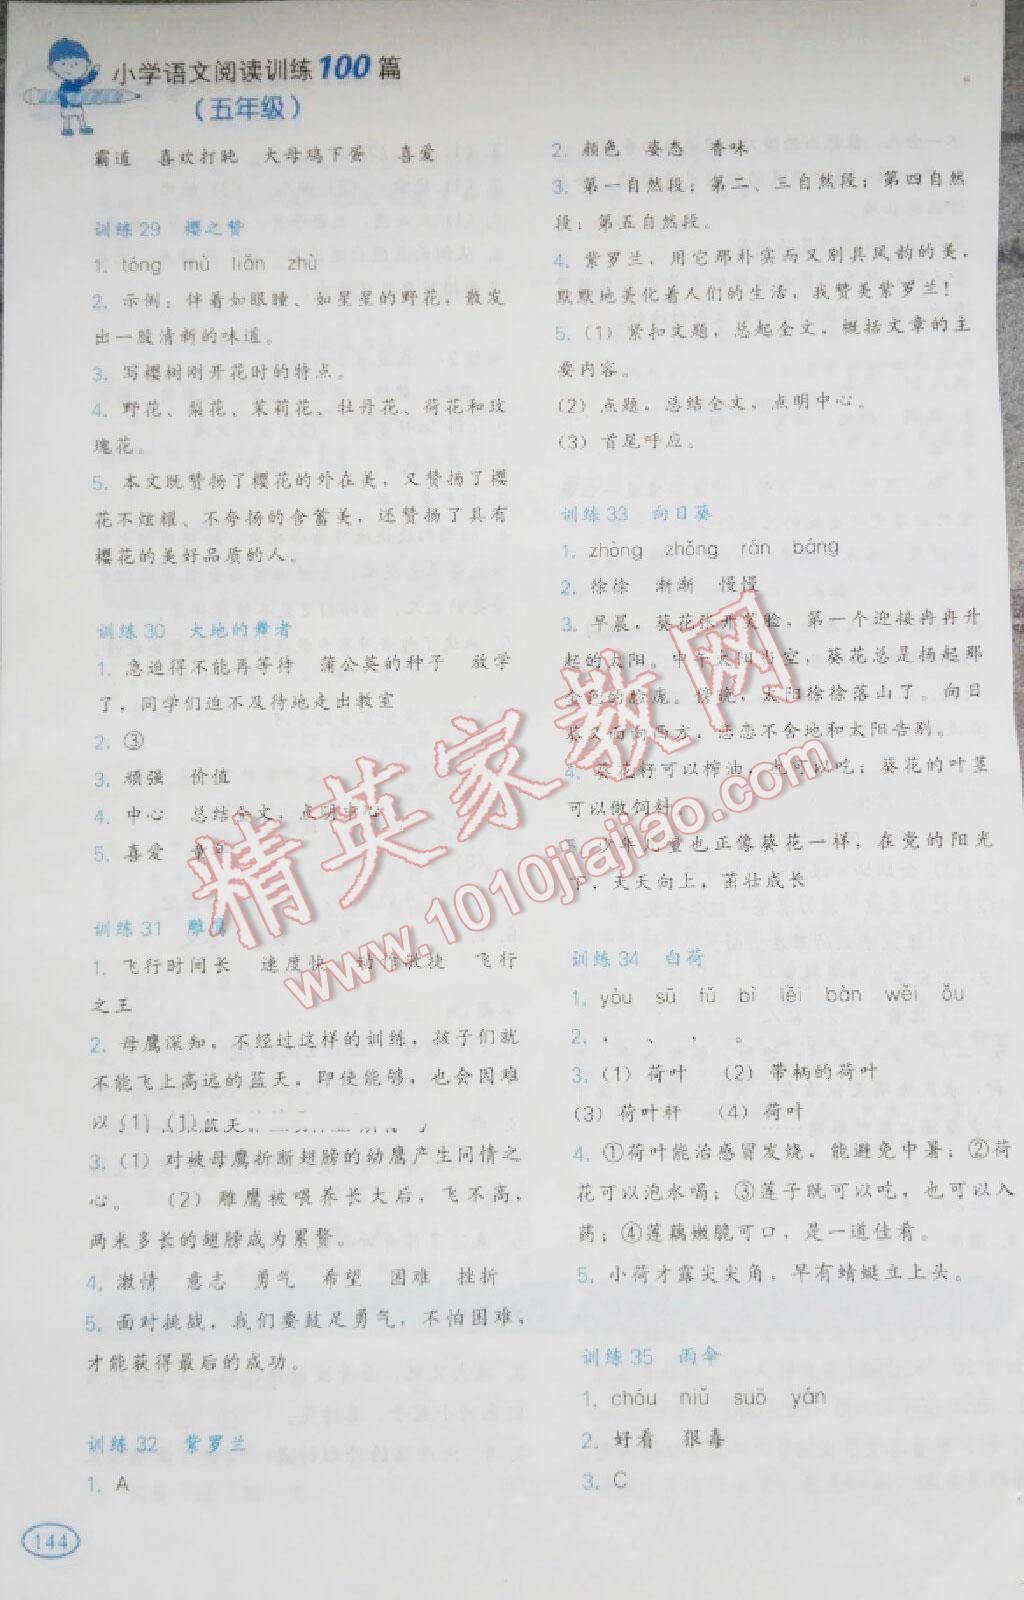 小学语文阅读训练100篇
（五年级）
霸道 喜欢打鸣 大母鸡下蛋 喜爱
训练29 樱之赞
1. tóng mù liǎn zhù
2. 示例：伴着如眼瞳、如星星的野花，散发
出一股清新的味道。
3. 写樱树刚开花时的特点。
4. 野花、梨花、茉莉花、牡丹花、荷花和玫
瑰花。
5. 本文既赞扬了樱花的外在美，又赞扬了樱
花不炫耀、不夸扬的含蓄美，还赞扬了具有
樱花的美好品质的人。
训练30 大地的舞者
1. 急迫得不能再等待 蒲公英的种子 放学
了，同学们迫不及待地走出教室
2. ③
3. 顽强 价值
4. 中心 总结全文，点明中心
5. 喜爱
训练31 雕鹰
1. 飞行时间长 速度快 动作敏捷 飞行
之王
2. 母鹰深知，不经过这样的训练，孩子们就
不能飞上高远的蓝天，即使能够，也会困难
以(1) (1) 蓝天
3. （1）对被母鹰折断翅膀的幼鹰产生同情之
心。 （2）雕鹰被喂养长大后，飞不高，
两米多长的翅膀成为累赘。
4. 激情 意志 勇气 希望 困难 挫折
5. 面对挑战，我们要鼓足勇气，不怕困难，
才能获得最后的成功。
训练32 紫罗兰
1. A
2. 颜色 姿态 香味
3. 第一自然段；第二、三自然段；第四自然
段；第五自然段。
4. 紫罗兰，用它那朴实而又别具风韵的美，
默默地美化着人们的生活，我赞美紫罗兰！
5.（1）紧扣文题，总起全文，概括文章的主
要内容。
（2）点题，总结全文，点明中心。
（3）首尾呼应。
训练33 向日葵
1. zhòng zhǎng rán báng
2. 徐徐 渐渐 慢慢
3. 早晨，葵花张开笑脸，第一个迎接冉冉升
起的太阳。中午太阳当空，葵花总是扬起那
金色的脸庞。傍晚，太阳徐徐落山了。向日
葵又面向西方，恋恋不舍地和太阳告别。
4. 葵花籽可以榨油，也可以吃；葵花的叶茎
可以做饲料。
5. 少年儿童也正像葵花一样，在党的阳光
下，天天向上，茁壮成长
训练34 白荷
1. yòu sū fǔ bì lěi bàn wěi ǒu
2. ， 、 ， 。
3.（1）荷叶 （2）带柄的荷叶
（3）荷叶秆 （4）荷叶
4. ①荷叶能治感冒发烧，能避免中暑；②荷
花可以泡水喝；③莲子既可以吃，也可以入
药；④莲藕嫩脆可口，是一道佳肴。
5. 小荷才露尖尖角，早有蜻蜓立上头。
训练35 雨伞
1. cháu niǔ suō yán
2. 好看 狠毒
3. C
144
精英家教网
www.1010jiajiao.com